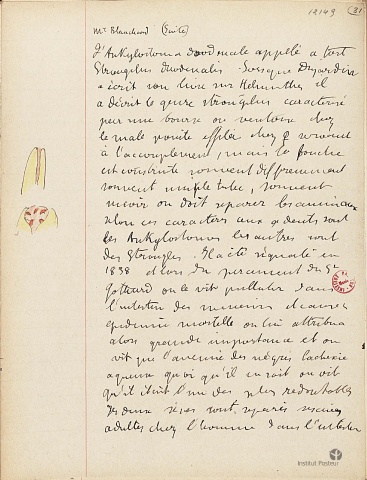 12149 (31)
Mr Blanchard (Suite)
d'Ankylostoma duodenale appelé a tort
Strongilus duodenalis. Lorsque Dujardin
a écrit son livre sur Helminthes il
a décrit le genre strongilus caracterisé
par une bourse ou ventouse chez
le male pointe effilée chez ♀ servant
à l'accouplement, mais la bouche
est construite souvent differemment
souvent simple tube, souvent
on doit separer les animaux
selon ces caractères ceux a dents sont
les Ankylostomes les autres sont
des Strongles. Il a été signalé en
1838 et lors du percement du St
Gothard on le vit pulluler dans
l'intestin des mineurs et causer
epidémie mortelle on lui attribua
alors grande importance et on
vit que l'anemie des nègres cachexie
aqueuse quoi qu'il en soit on vit
qu'il était l'un des plus redoutables
les deux sexes sont separés
adultes chez l'homme dans l'intestin
Institut Pasteur